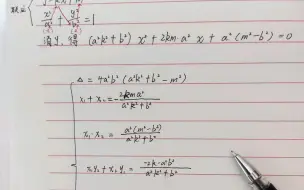 联立
x²/a² + y²/b² = 1
消y, 得 (a²k²+b²) x² + 2km·a² x + a²(m²-b²) = 0
Δ = 4a²b² (a²k²+b²-m²)
x₁+x₂ = -2kma²/a²k²+b²
x₁·x₂ = a²(m²-b²)/a²k²+b²
x₁y₂+x₂y₁ = -2k·a²b²/a²k²+b²